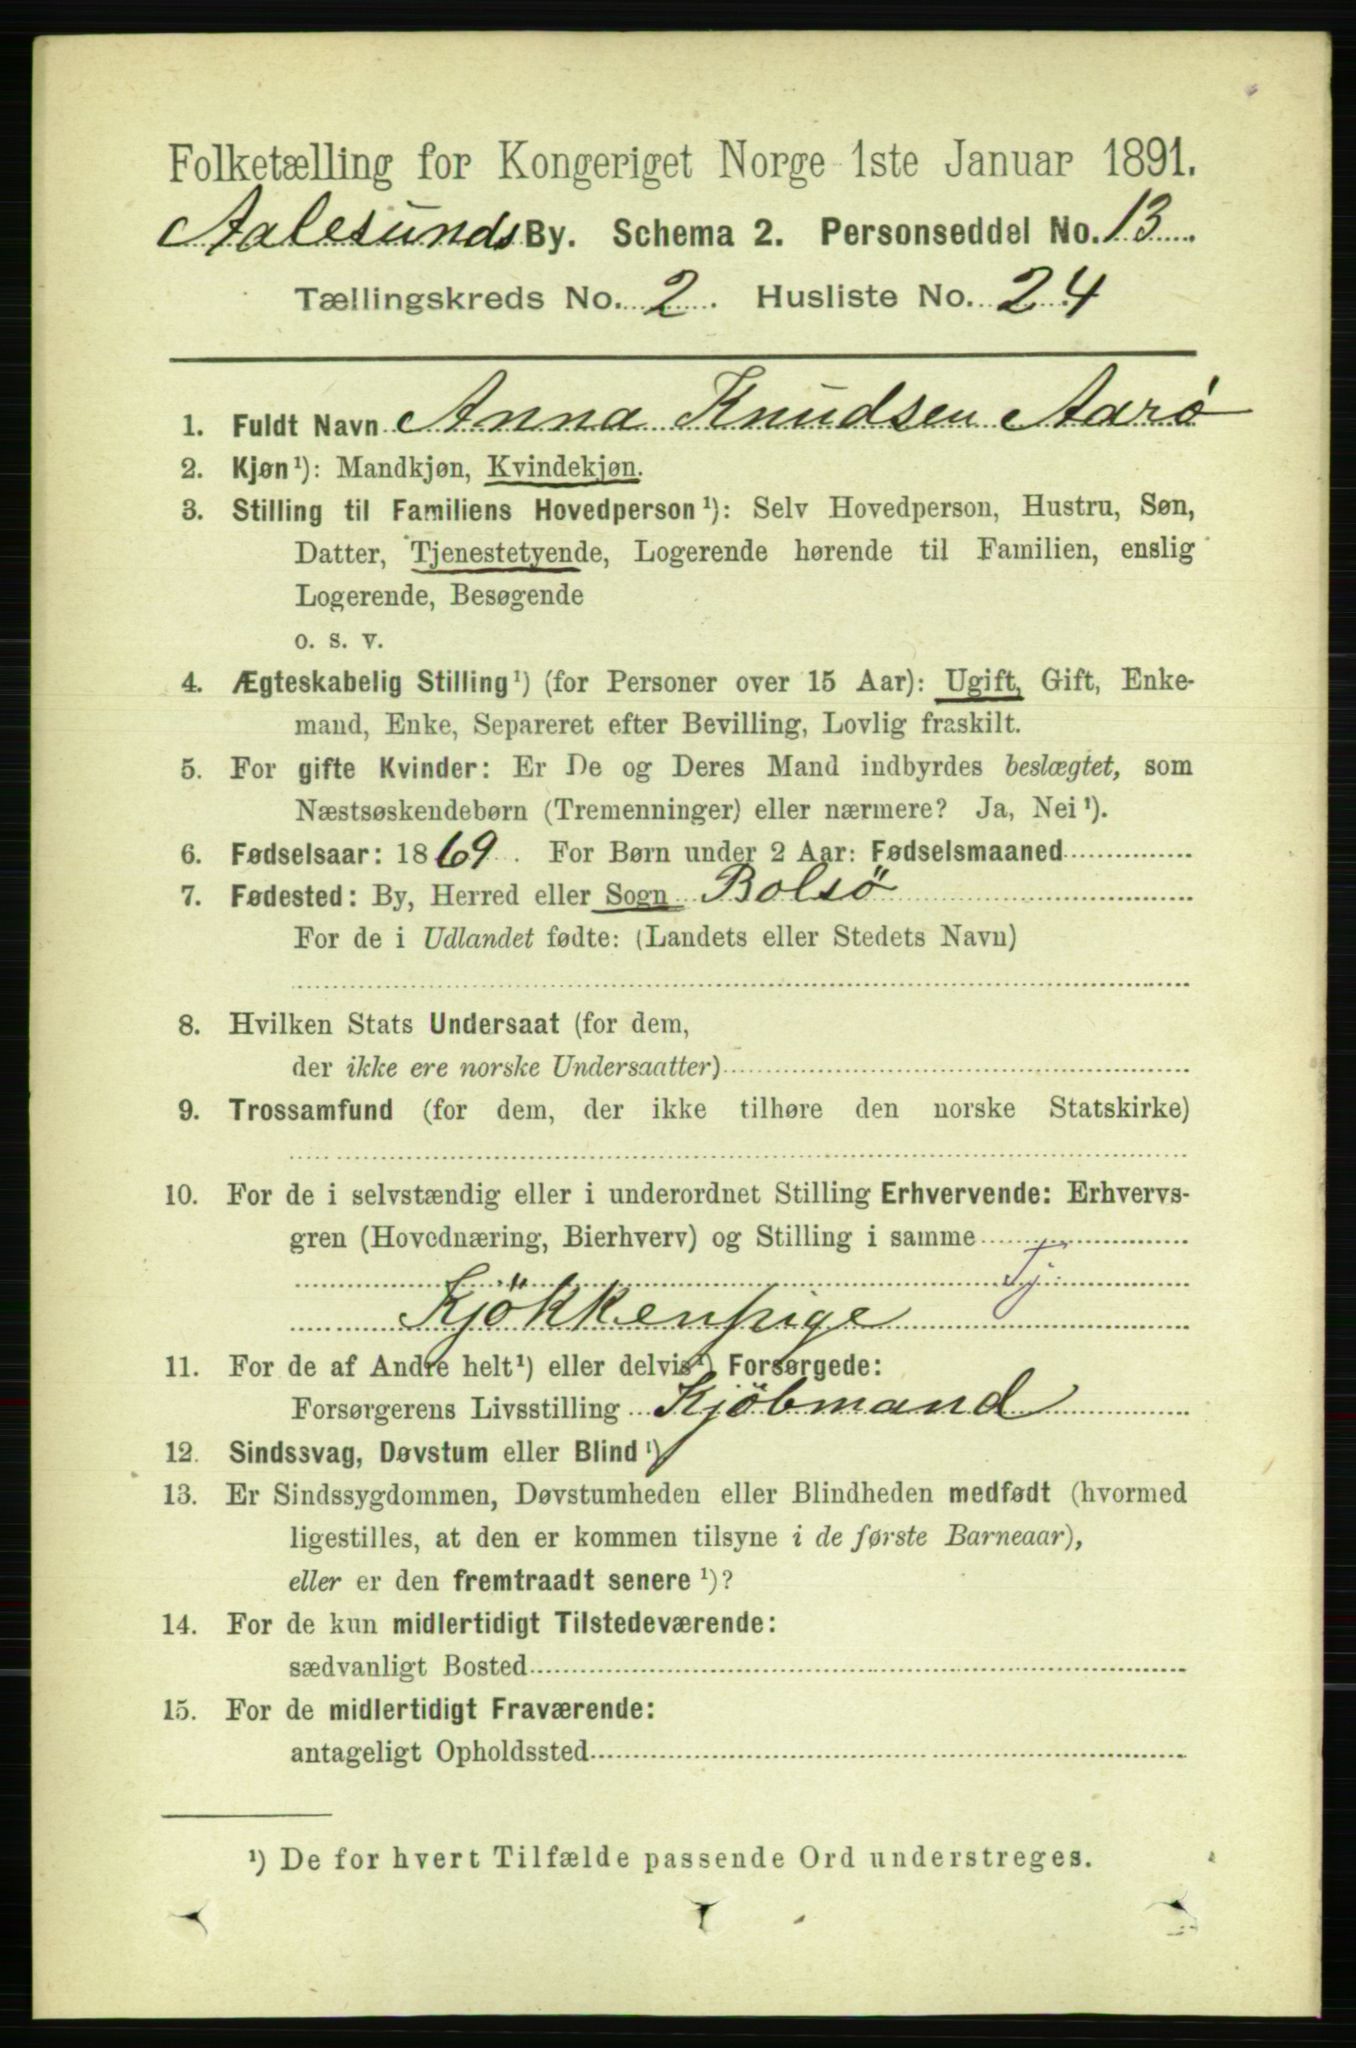 Folketælling for Kongeriget Norge 1ste Januar 1891.
Aalesunds By. Schema 2. Personseddel No. 13
Tællingskreds No. 2. Husliste No. 24
1. Fuldt Navn Anna Knudsen Aarö
2. Kjøn¹): Mandkjøn, Kvindekjøn.
3. Stilling til Familiens Hovedperson¹): Selv Hovedperson, Hustru, Søn,
Datter, Tjenestetyende, Logerende hørende til Familien, enslig
Logerende, Besøgende
o. s. v.
4. Ægteskabelig Stilling¹) (for Personer over 15 Aar): Ugift, Gift, Enke-
mand, Enke, Separeret efter Bevilling, Lovlig fraskilt.
5. For gifte Kvinder: Er De og Deres Mand indbyrdes beslægtet, som
Næstsøskendebørn (Tremenninger) eller nærmere? Ja, Nei¹).
6. Fødselsaar: 1869. For Børn under 2 Aar: Fødselsmaaned
7. Fødested: By, Herred eller Sogn Bolsö
For de i Udlandet fødte: (Landets eller Stedets Navn)
8. Hvilken Stats Undersaat (for dem,
der ikke ere norske Undersaatter)
9. Trossamfund (for dem, der ikke tilhøre den norske Statskirke)
10. For de i selvstændig eller i underordnet Stilling Erhvervende: Erhvervs-
gren (Hovednæring, Bierhverv) og Stilling i samme
Tj.
Kjökkenpige
11. For de af Andre helt¹) eller delvis¹) Forsørgede:
Forsørgerens Livsstilling Kjöbmand
12. Sindssvag, Døvstum eller Blind¹)
13. Er Sindssygdommen, Døvstumheden eller Blindheden medfødt (hvormed
ligestilles, at den er kommen tilsyne i de første Barneaar),
eller er den fremtraadt senere¹)?
14. For de kun midlertidigt Tilstedeværende:
sædvanligt Bosted
15. For de midlertidigt Fraværende:
antageligt Opholdssted
¹) De for hvert Tilfælde passende Ord understreges.